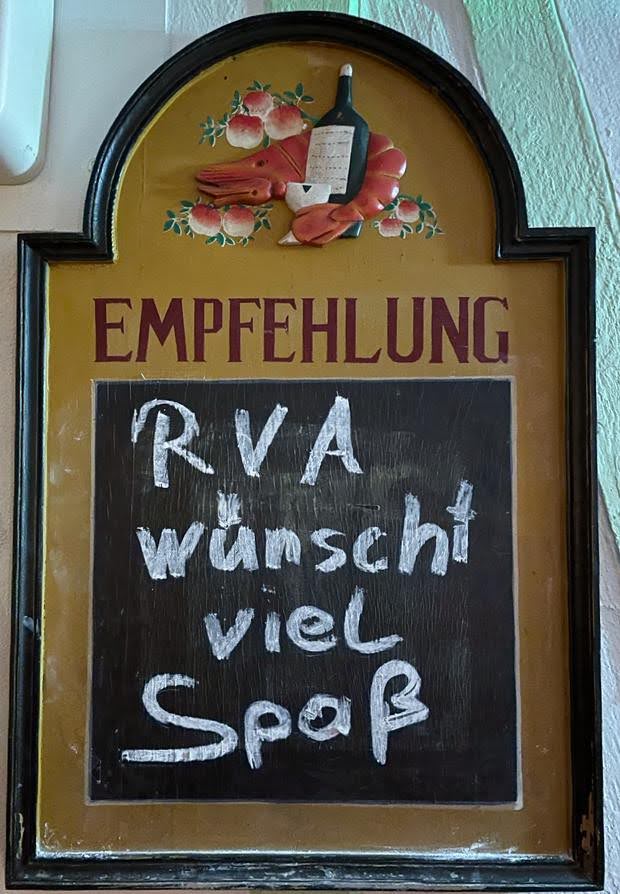 EMPFEHLUNG
RVA
wünscht
viel
Spaß